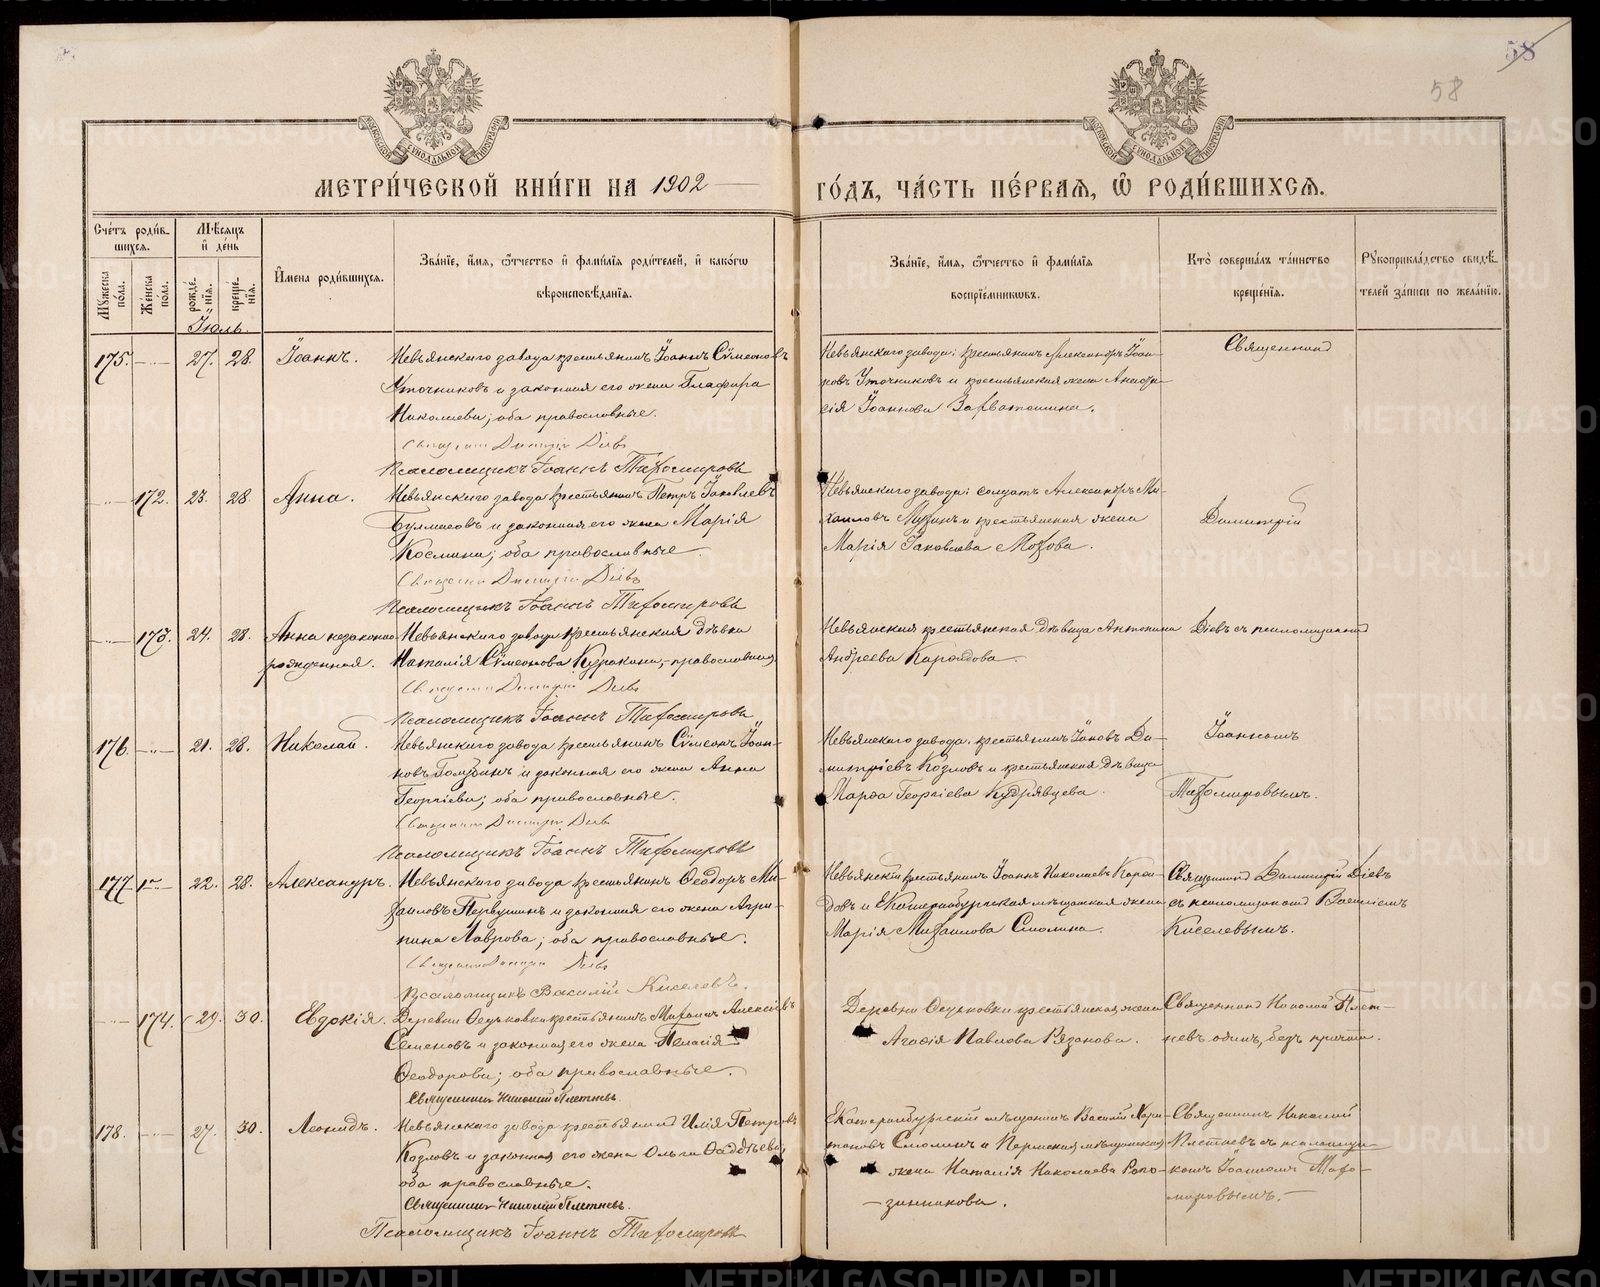 58
58
МОСКОВСКОЙ СѴНОДАЛЬНОЙ ТИПОГРАФІИ
МОСКОВСКОЙ СѴНОДАЛЬНОЙ ТИПОГРАФІИ
МЕТРИ́ЧЕСКОЙ КНИ́ГИ НА 1902
ГО́ДЪ, ЧА́СТЬ ПЕ́РВАЯ, Ѡ҆ РОДИ́ВШИХСЯ.
Сче́тъ роди́в-
шихся.
Мѣ́сяцъ
и҆ де́нь
Мꙋ́жеска по́ла.
Же́нска по́ла.
рожде́-нїя.
креще́-нїя.
И҆мена̀ роди́вшихся.
Зва́нїе, и҆́мя, ѻ҆́тчество и҆ фами́лїя роди́телей, и҆ како́гѡ
вѣроисповѣ́данїя.
Зва́нїе, и҆́мя, ѻ҆́тчество и҆ фами́лїя
воспрїе́мниковъ.
Кто̀ соверша́лъ та́инство
креще́нїя.
Рꙋкоприкла́дство свидѣ́-
телей за́писи по жела́нїю.
Іюль.
175. 27. 28. Іоаннъ. Невьянскаго завода крестьянинъ Іоаннъ Сѵмеоновъ
Уточниковъ и законная его жена Глафира
Николаева; оба православные.
Священникъ Димитрій Діевъ
Псаломщикъ Іоаннъ Тихомировъ
Невьянскаго завода: крестьянинъ Александръ Іоан-
новъ Уточниковъ и крестьянская жена Анфи-
сія Іоаннова
Священникъ
172. 23. 28. Анна. Невьянскаго завода крестьянинъ Петръ Іаковлевъ
и законная его жена Марія
Космина; оба православные.
Священникъ Димитрій Діевъ
Псаломщикъ Іоаннъ Тихомировъ
Невьянскаго завода: солдатъ Александръ Ми-
хаиловъ и крестьянская жена
Марія Іаковлева Мохова.
Димитрій
173. 24. 28. Анна незаконно-
рожденная.
Невьянскаго завода крестьянская дѣвка
Наталія Сѵмеонова Куракина, православная.
Священникъ Димитрій Діевъ
Псаломщикъ Іоаннъ Тихомировъ
Невьянская крестьянская дѣвица Антонина
Андреева
Діевъ съ псаломщикомъ
176. 21. 28. Николай. Невьянскаго завода крестьянинъ Сѵмеонъ Іоан-
новъ и законная его жена Анна
Георгіева; оба православные.
Священникъ Димитрій Діевъ
Псаломщикъ Іоаннъ Тихомировъ
Невьянскаго завода: крестьянинъ Іаковъ Ди-
митріевъ Козловъ и крестьянская дѣвица
Марѳа Георгіева Кудрявцева.
Іоанномъ
Тихомировымъ.
177. 22. 28. Александръ. Невьянскаго завода крестьянинъ Ѳеодоръ Ми-
хаиловъ Первушинъ и законная его жена Агрип-
пина Лаврова; оба православные.
Священникъ Димитрій Діевъ
Псаломщикъ Василій Киселевъ.
Невьянскій крестьянинъ Іоаннъ Николаевъ
и Екатеринбургская мѣщанская жена
Марія Михаилова Смолина.
Священникъ Димитрій Діевъ
съ псаломщикомъ Василіемъ
Киселевымъ.
174. 29. 30. Евдокія. Деревни Ѳедьковки крестьянинъ Алексіевъ
Семеновъ и законная его жена Пелагія
Ѳеодорова; оба православные.
Священникъ Николай Плетневъ.
Деревни Ѳедьковки крестьянская жена
Агаѳія Павлова Рязанова.
Священникъ Николай Плет-
невъ одинъ, безъ причта.
178. 27. 30. Леонидъ. Невьянскаго завода крестьянинъ Илія Петровъ
Козловъ и законная его жена Ольга Ѳаддѣева;
оба православные.
Священникъ Николай Плетневъ.
Псаломщикъ Іоаннъ Тихомировъ
Екатеринбургскій мѣщанинъ Василій Хари-
тоновъ Смолинъ и Пермская мѣщанская
жена Наталія Николаева Рого-
зинникова.
Священникъ Николай
Плетневъ съ псаломщи-
комъ Іоанномъ Тихо-
мировымъ.
METRIKI.GASO-URAL.RU